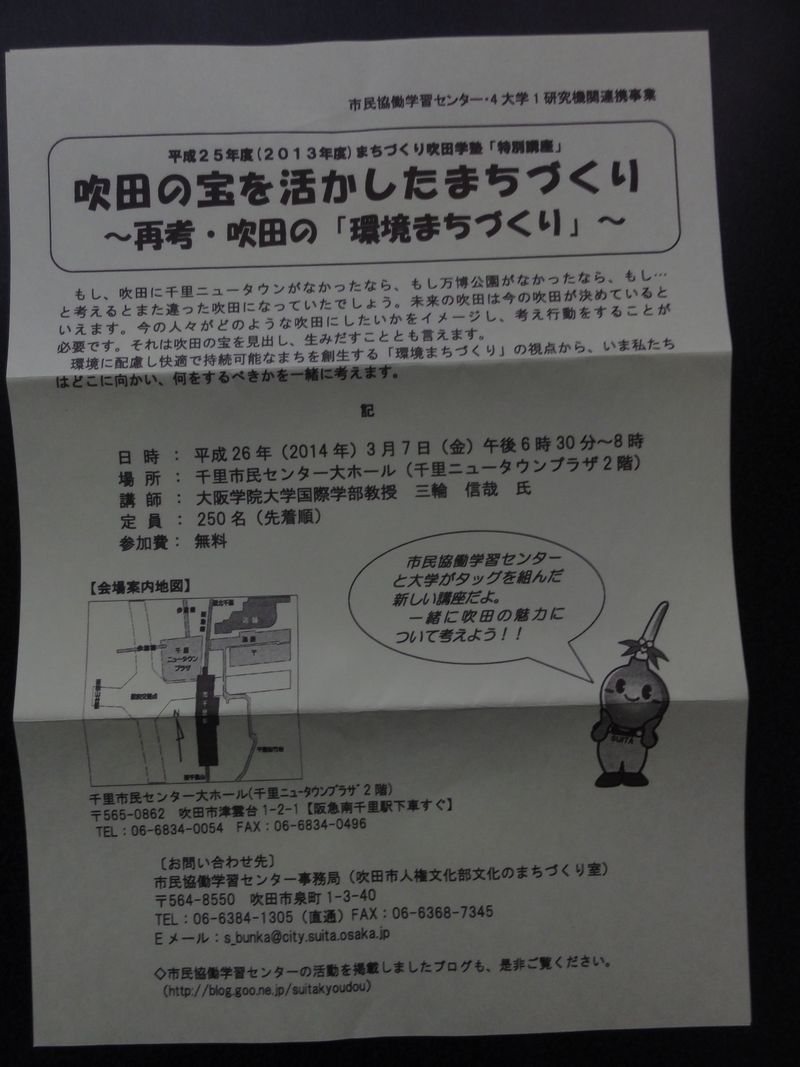 市民協働学習センター・4大学1研究機関連携事業
平成25年度(2013年度)まちづくり吹田学塾「特別講座」
吹田の宝を活かしたまちづくり
～再考・吹田の「環境まちづくり」～
もし、吹田に千里ニュータウンがなかったなら、もし万博公園がなかったなら、もし…
と考えるとまた違った吹田になっていたでしょう。未来の吹田は今の吹田が決めていると
いえます。今の人々がどのような吹田にしたいかをイメージし、考え行動をすることが
必要です。それは吹田の宝を見出し、生みだすこととも言えます。
環境に配慮し快適で持続可能なまちを創生する「環境まちづくり」の視点から、いま私たち
はどこに向かい、何をするべきかを一緒に考えます。
記
日時：平成26年（2014年）3月7日（金）午後6時30分～8時
場所：千里市民センター大ホール（千里ニュータウンプラザ2階）
講師：大阪学院大学国際学部教授 三輪 信哉 氏
定員：250名（先着順）
参加費：無料
市民協働学習センター
と大学がタッグを組んだ
新しい講座だよ。
一緒に吹田の魅力に
ついて考えよう！！
【会場案内地図】
千里
ニュータウン
プラザ
N
SUITA
千里市民センター大ホール(千里ﾆｭｰﾀｳﾝﾌﾟﾗｻﾞ2階)
〒565-0862 吹田市津雲台1-2-1【阪急南千里駅下車すぐ】
TEL：06-6834-0054 FAX：06-6834-0496
〔お問い合わせ先〕
市民協働学習センター事務局（吹田市人権文化部文化のまちづくり室）
〒564-8550 吹田市泉町1-3-40
TEL：06-6384-1305（直通）FAX：06-6368-7345
Eメール：s_bunka@city.suita.osaka.jp
◇市民協働学習センターの活動を掲載しましたブログも、是非ご覧ください。
（http://blog.goo.ne.jp/suitakyoudou）